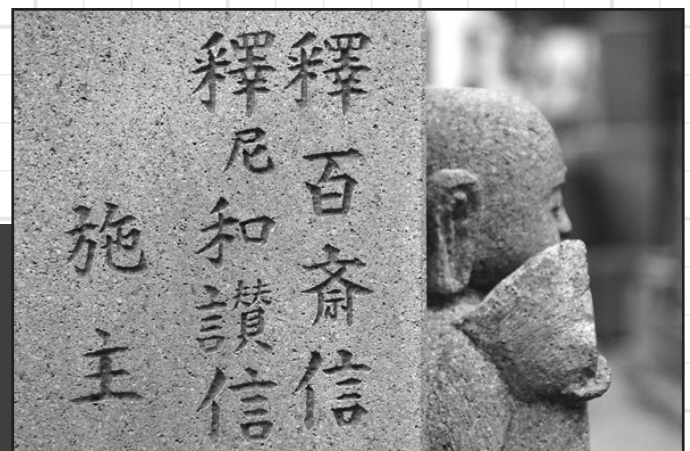 釋百斎信
釋尼和讃信
施主